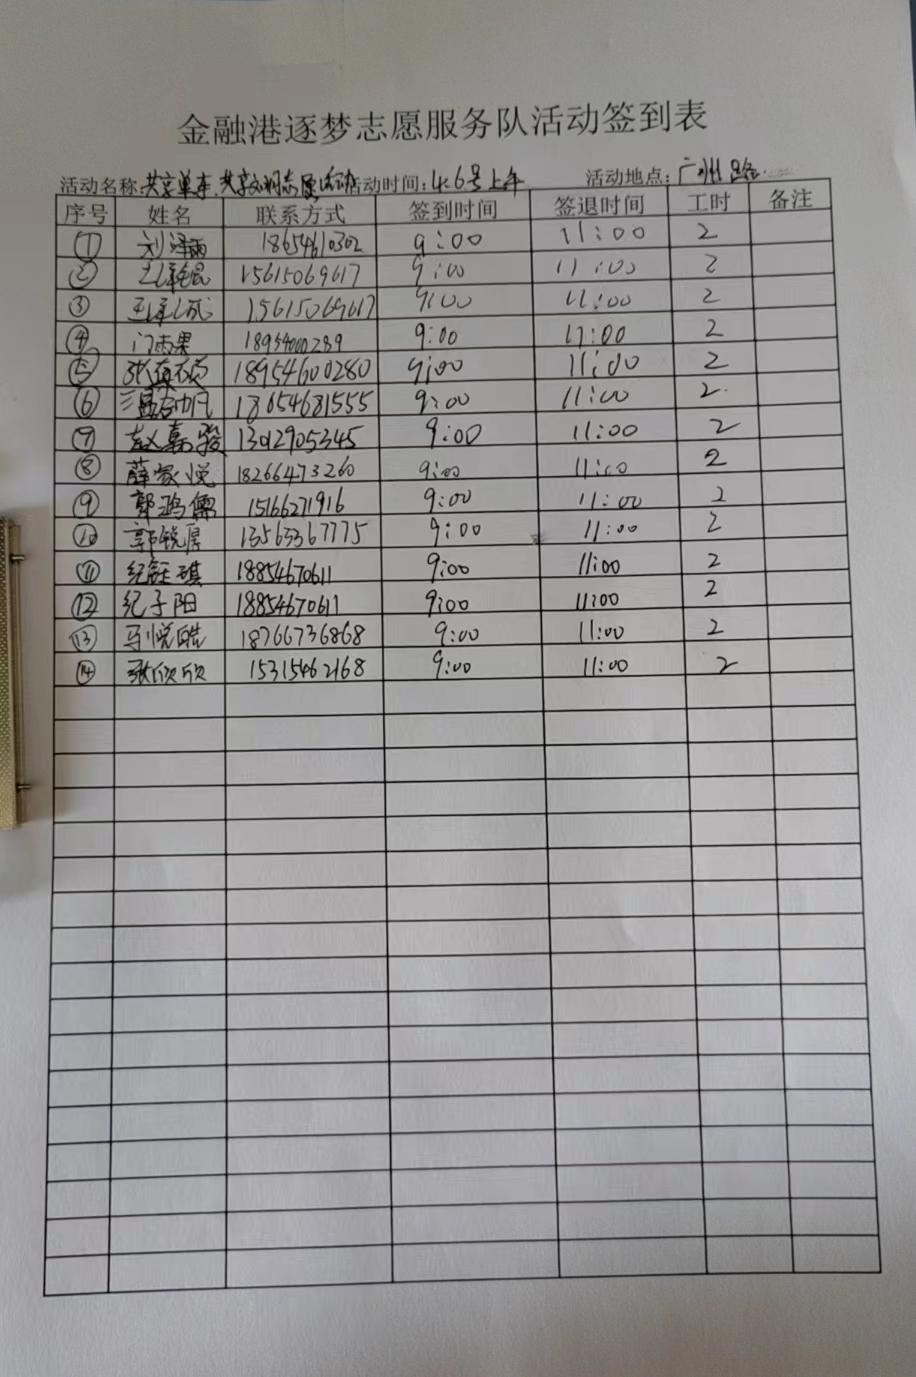 金融港逐梦志愿服务队活动签到表
活动名称:共享单车,共享文明志愿活动 活动时间:4.6号上午 活动地点:广州路
序号 姓名 联系方式 签到时间 签退时间 工时 备注
① 刘泽雨 18654610302 9:00 11:00 2
② 15615069617 9:00 11:00 2
③ 15615069617 9:00 11:00 2
④ 门雨果 18954000289 9:00 11:00 2
⑤ 18954600280 9:00 11:00 2
⑥ 18654681555 9:00 11:00 2
⑦ 赵嘉骏 13012905345 9:00 11:00 2
⑧ 薛家悦 18266473260 9:00 11:00 2
⑨ 郭鸿儒 15166271916 9:00 11:00 2
⑩ 郭锐居 13563367775 9:00 11:00 2
⑪ 纪钰琪 18854670611 9:00 11:00 2
⑫ 纪子阳 18854670611 9:00 11:00 2
⑬ 马悦皓 18766736868 9:00 11:00 2
⑭ 张欣欣 15315462168 9:00 11:00 2